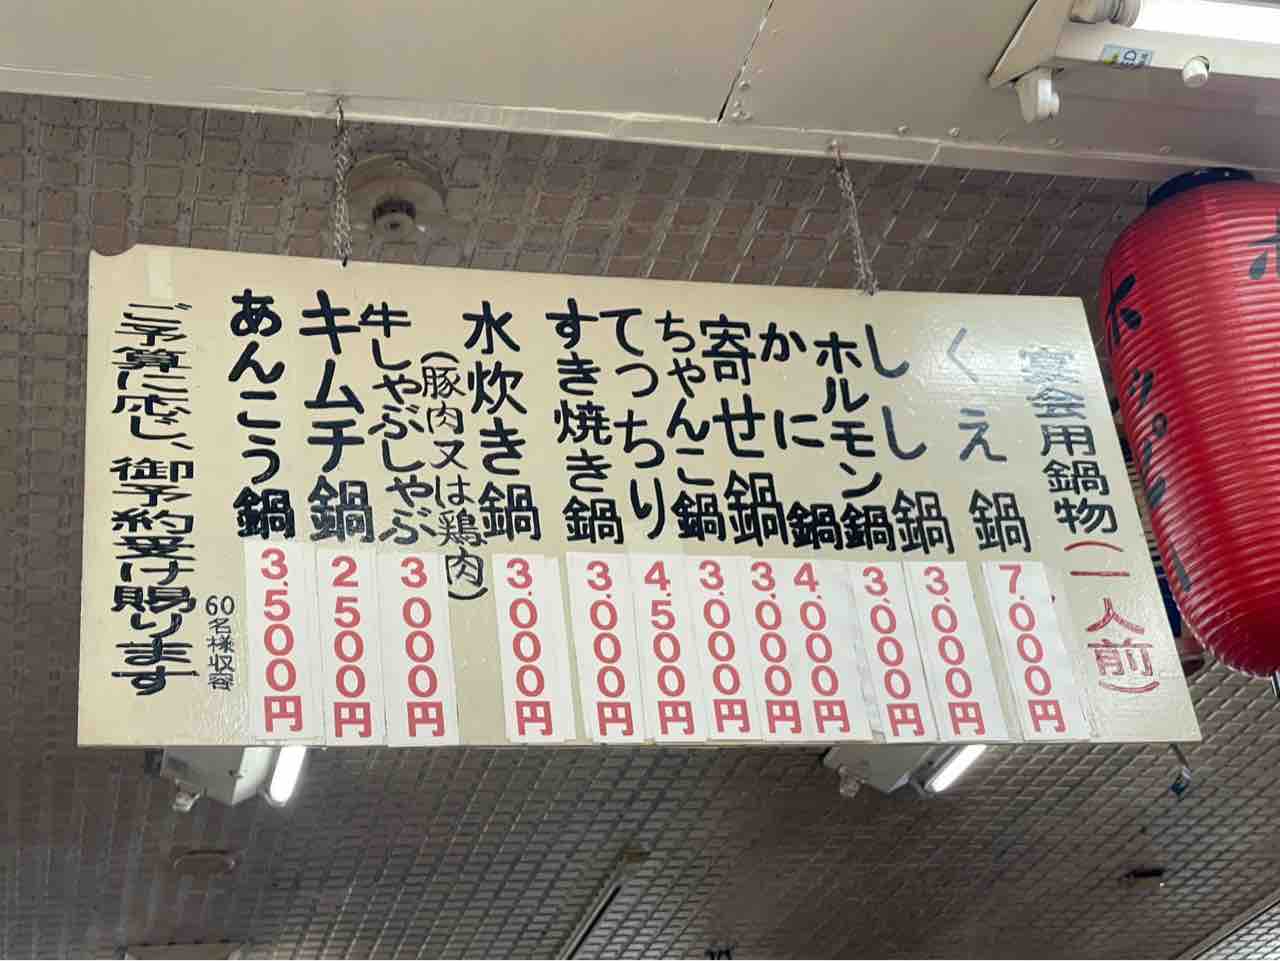 宴会用鍋物(一人前)
くえ鍋 7.000円
しし鍋 3.000円
ホルモン鍋 3.000円
かに鍋 4.000円
寄せ鍋 3.000円
ちゃんこ鍋 3.000円
てっちり 4.500円
すき焼き鍋 3.000円
水炊き鍋 3.000円
(豚肉又は鶏肉)
牛しゃぶしゃぶ 3000円
キムチ鍋 2500円
あんこう鍋 3.500円
ご予算に応じ、御予約受け賜ります
60名様収容